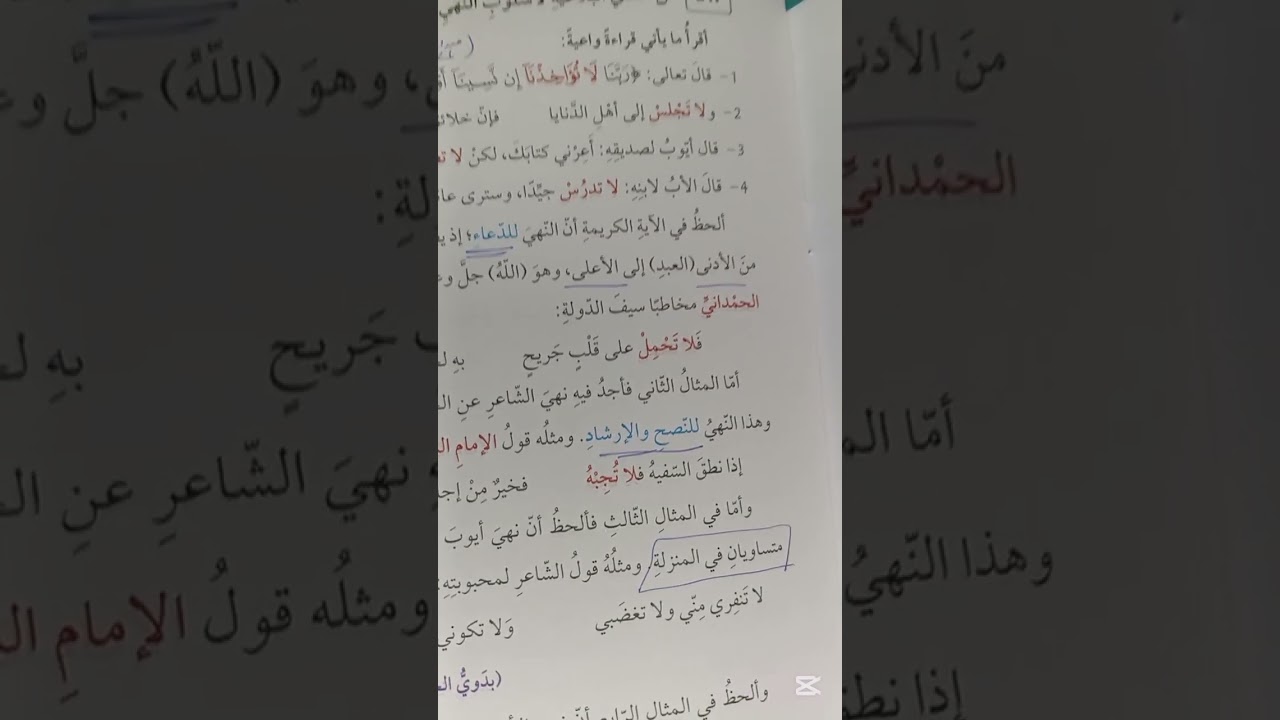 أقرأُ ما يأتي قراءةً واعيةً:
1- قالَ تعالى: ﴿رَبَّنَا لَا تُؤَاخِذْنَا إِن نَّسِينَا
2- ولا تَجْلسْ إلى أهْلِ الدَّنايا فإنّ
3- قال أيّوبُ لصديقِهِ: أَعِرْني كتابَكَ، لكنْ لا
4- قالَ الأبُ لابنِهِ: لا تدرُسْ جيِّدًا، وسترى
ألحظُ في الآيةِ الكريمةِ أنّ النّهيَ للدّعاءِ؛ إذ
منَ الأدنى (العبدِ) إلى الأعلى، وهوَ (اللّهُ) جلَّ
الحمْدانيِّ مخاطبًا سيفَ الدّولةِ:
فَلا تَحْمِلْ على قَلْبٍ جَريحٍ بهِ
أمّا المثالُ الثّاني فأجدُ فيهِ نهيَ الشّاعرِ عنِ
وهذا النّهيُ للنّصحِ والإرشادِ. ومثلُه قولُ الإمامِ
إذا نطقَ السّفيهُ فلا تُجِبْهُ فخيرٌ مِنْ
وأمّا في المثالِ الثّالثِ فألحظُ أنّ نهيَ أيوبَ
متساويانِ في المنزلةِ. ومثلُهُ قولُ الشّاعرِ لمحبوبتِهِ:
لا تَنفِري مِنّي ولا تغضَبي وَلا تكوني
(بدَويُّ
وألحظُ في المثالِ الرّابعِ أنّ